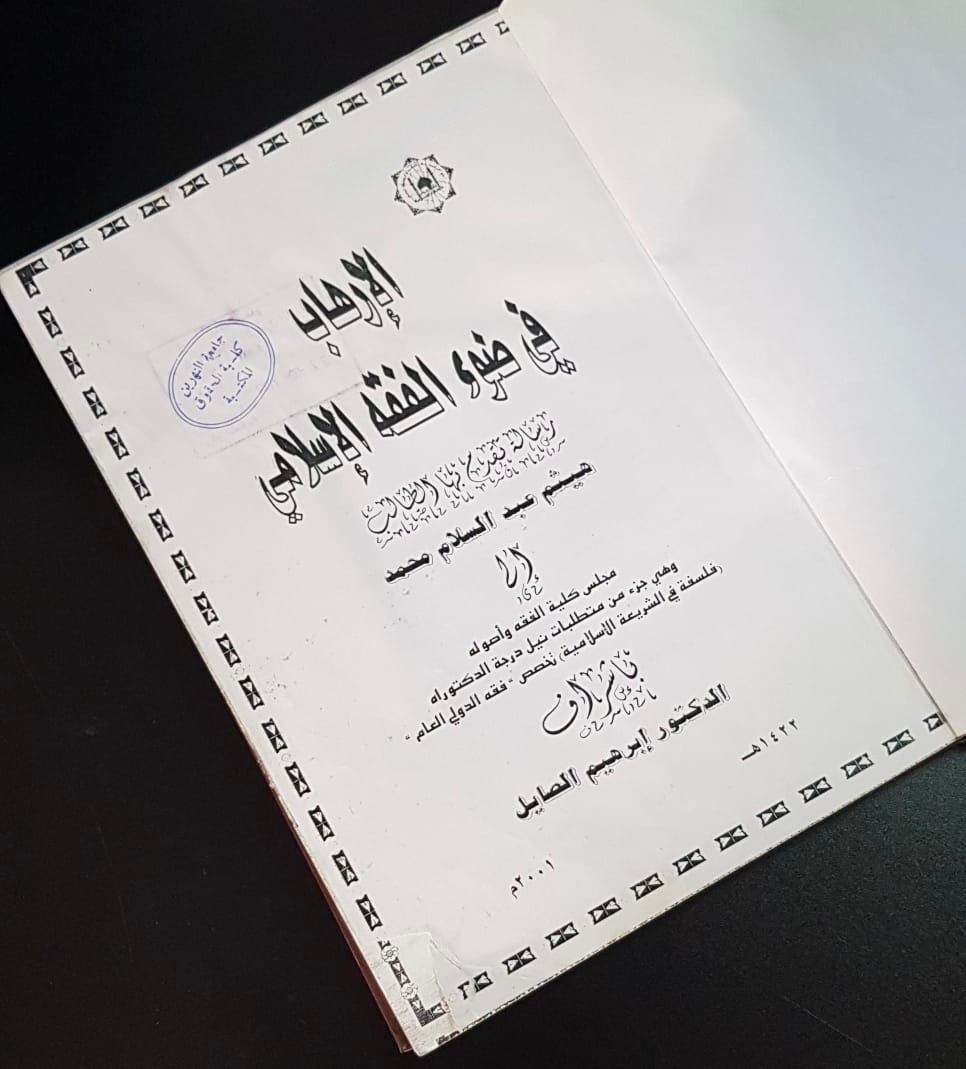 جامعة النهرين
كلية الحقوق
المكتبة
الإرهاب
في ضوء الفقه الإسلامي
رسالة تقدم بها الطالب
هيثم عبد السلام محمد
إلى
مجلس كلية الفقه وأصوله
وهي جزء من متطلبات نيل درجة الدكتوراه
(فلسفة في الشريعة الاسلامية) تخصص "فقه الدولي العام"
بإشراف
الدكتور إبرهيم الصايل
١٤٢٢هـ
٢٠٠١م